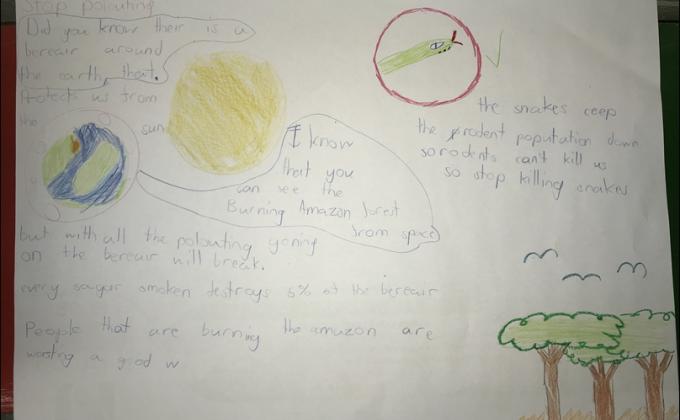 Stop polouting
Did you know their is a
bereair around
the earth, that.
Protects us from
the sun
I know
that you
can see the
Burning Amazon forest
from space
but with all the polouting goning
on the bereair will break.
every sagar smoken destroys 5% of the bereair
People that are burning the amazon are
wasting a good w
the snakes ceep
the rodent poputation down
so rodents can't kill us
so stop killing snakes